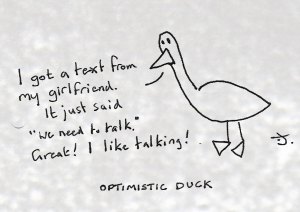 I got a text from
my girlfriend.
It just said
"we need to talk."
Great! I like talking!
OPTIMISTIC DUCK